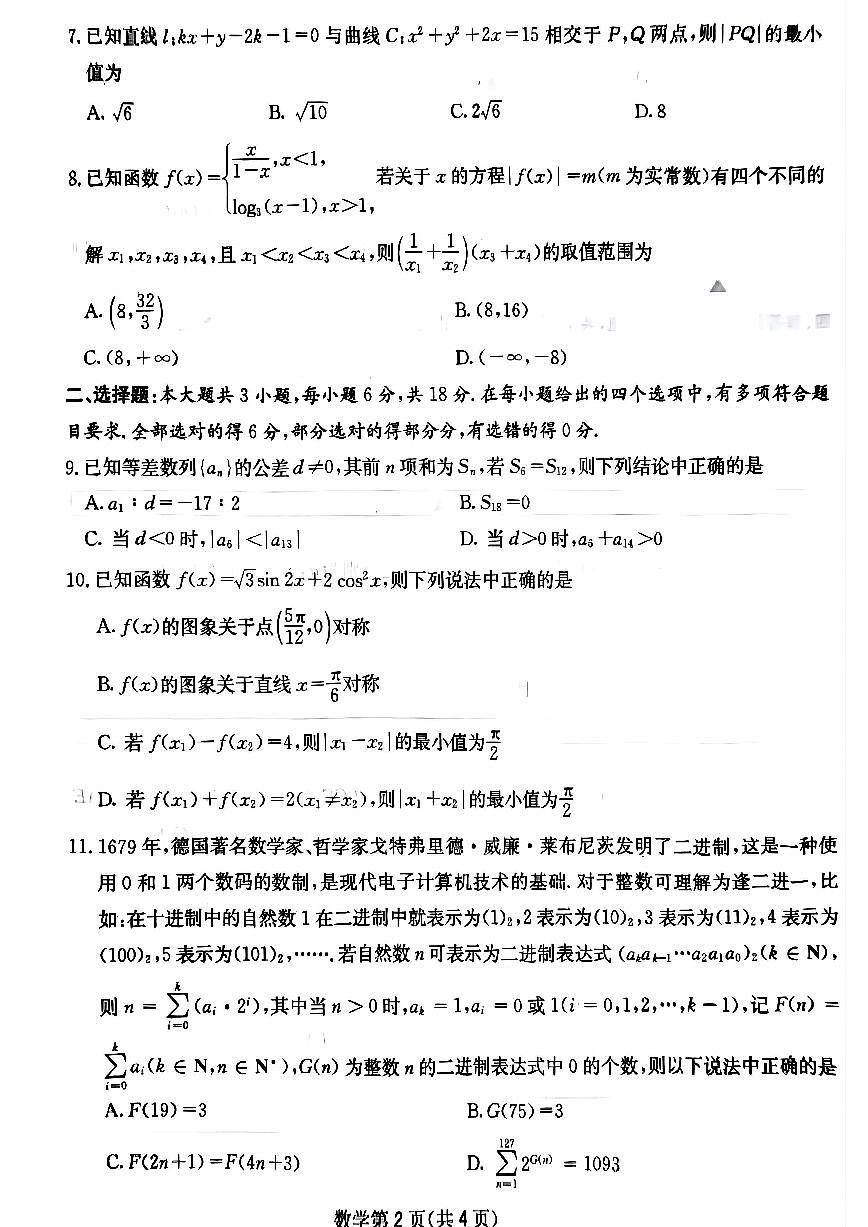 7. 已知直线 l:kx+y−2k−1=0 与曲线 C:x²+y²+2x=15 相交于 P,Q 两点,则|PQ|的最小
值为
A. √6 B. √10 C. 2√6 D. 8
8. 已知函数 f(x)={x/(1−x),x<1, log₃(x−1),x>1, 若关于 x 的方程|f(x)|=m(m 为实常数)有四个不同的
解 x₁,x₂,x₃,x₄,且 x₁<x₂<x₃<x₄,则(1/x₁+1/x₂)(x₃+x₄)的取值范围为
A. (8,32/3) B. (8,16)
C. (8,+∞) D. (−∞,−8)
二、选择题:本大题共 3 小题,每小题 6 分,共 18 分.在每小题给出的四个选项中,有多项符合题
目要求.全部选对的得 6 分,部分选对的得部分分,有选错的得 0 分.
9. 已知等差数列{aₙ}的公差 d≠0,其前 n 项和为 Sₙ,若 S₆=S₁₂,则下列结论中正确的是
A. a₁:d=−17:2 B. S₁₈=0
C. 当 d<0 时,|a₆|<|a₁₃| D. 当 d>0时,a₅+a₁₄>0
10. 已知函数 f(x)=√3sin 2x+2 cos²x,则下列说法中正确的是
A. f(x)的图象关于点(5π/12,0)对称
B. f(x)的图象关于直线 x=π/6对称
C. 若 f(x₁)−f(x₂)=4,则|x₁−x₂|的最小值为π/2
D. 若 f(x₁)+f(x₂)=2(x₁≠x₂),则|x₁+x₂|的最小值为π/2
11. 1679 年,德国著名数学家、哲学家戈特弗里德·威廉·莱布尼茨发明了二进制,这是一种使
用 0 和 1 两个数码的数制,是现代电子计算机技术的基础.对于整数可理解为逢二进一,比
如:在十进制中的自然数 1 在二进制中就表示为(1)₂,2 表示为(10)₂,3 表示为(11)₂,4 表示为
(100)₂,5 表示为(101)₂,…….若自然数 n 可表示为二进制表达式 (aₖaₖ₋₁⋯a₂a₁a₀)₂(k∈N),
则 n=∑_{i=0}^{k}(aᵢ·2ⁱ),其中当 n>0时,aₖ=1,aᵢ=0或 1(i=0,1,2,⋯,k−1),记 F(n)=
∑_{i=0}^{k}aᵢ(k∈N,n∈N*),G(n)为整数 n 的二进制表达式中 0 的个数,则以下说法中正确的是
A. F(19)=3 B. G(75)=3
C. F(2n+1)=F(4n+3) D. ∑_{n=1}^{127}2^{G(n)}=1093
数学第 2 页(共 4 页)